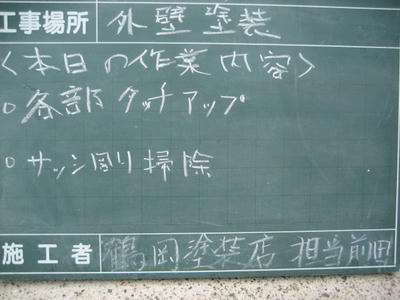 工事場所 外壁塗装
〈本日の作業内容〉
○各部タッチアップ
○サッシ周り掃除
施工者 鶴岡塗装店 担当前田